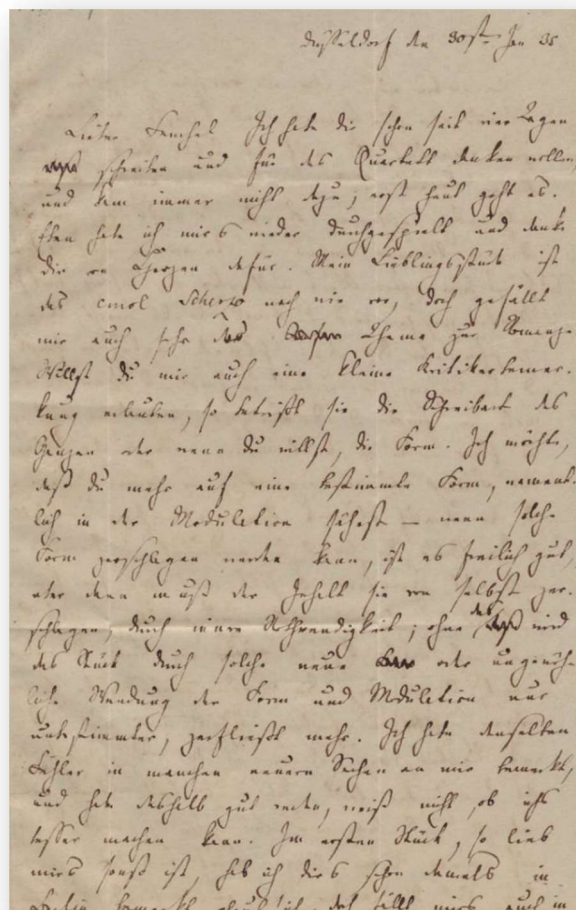 Düsseldorf den 30st. Jan 35
Liebe Fenchel Ich habe dir schon seit vier Tagen
schreiben und für das Quartett danken wollen,
und kam immer nicht dazu; erst heut geht es.
Eben habe ich mirs wieder durchgespielt und danke
dir von Herzen dafür. Mein Lieblingsstück ist
das cmol Scherzo nach wie vor, doch gefällt
mir auch sehr das Thema zur Romanze
Willst du mir auch eine kleine Kritikerbemer-
kung erlauben, so betrifft sie die Schreibart des
Ganzen oder wenn du willst, die Form. Ich möchte,
daß du mehr auf eine bestimmte Form, nament-
lich in der Modulation sähest – wenn solche
Form zerschlagen werden kann, ist es freilich gut,
aber dann muß der Inhalt sie von selbst zer-
schlagen, durch innre Nothwendigkeit; ohne das wird
das Stück durch solche neue oder ungewöhn-
liche Wendung der Form und Modulation nur
unbestimmter, zerfließt mehr. Ich habe denselben
Fehler in manchen neuern Sachen an mir bemerkt,
und habe deshalb gut reden, weiß nicht, ob ichs
besser machen kann. Im ersten Stück, so lieb
mirs sonst ist, hab ich dies schon damals in
Berlin bemerkt glaub ich, das fällt mirs auch in